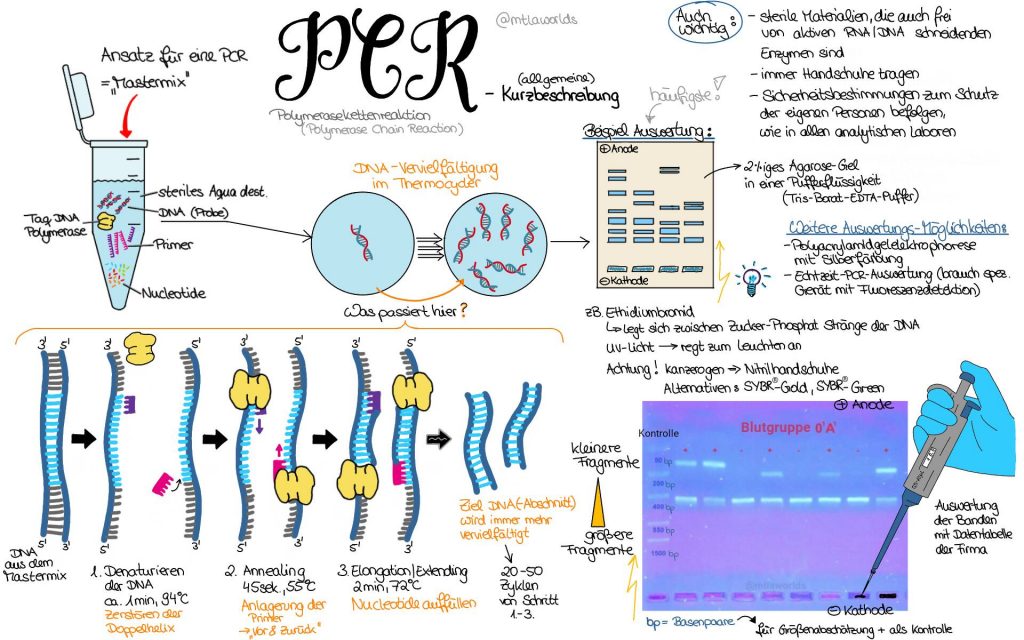 PCR
@mtlaworlds
Polymerasekettenreaktion
(Polymerase Chain Reaction)
(allgemeine)
- Kurzbeschreibung
Auch
wichtig:
- sterile Materialien, die auch frei
von aktiven RNA/DNA schneidenden
Enzymen sind
- immer Handschuhe tragen
- Sicherheitsbestimmungen zum Schutz
der eigenen Personen befolgen,
wie in allen analytischen Laboren
Ansatz für eine PCR
= „Mastermix"
steriles Aqua dest.
DNA (Probe)
Taq DNA
Polymerase
Primer
Nucleotide
DNA-Vervielfältigung
im Thermocycler
Was passiert hier?
häufigste!
Beispiel Auswertung:
+ Anode
- Kathode
2%iges Agarose-Gel
in einer Pufferflüssigkeit
(Tris-Borat-EDTA-Puffer)
Weitere Auswertungs-Möglichkeiten:
- Polyacrylamidgelelektrophorese
mit Silberfärbung
- Echtzeit-PCR-Auswertung (brauch spez.
Gerät mit Fluoreszenzdetektion)
zB. Ethidiumbromid
↳ legt sich zwischen Zucker-Phosphat Stränge der DNA
UV-Licht → regt zum Leuchten an
Achtung! kanzerogen ⇒ Nitrilhandschuhe
Alternativen: SYBR®-Gold, SYBR®-Green
3' 5'
3' 5'
3' 5'
3' 5'
5' 3'
5' 3'
5' 3'
5' 3'
DNA
aus dem
Mastermix
1. Denaturieren
der DNA
ca. 1min, 94°C
Zerstören der
Doppelhelix
2. Annealing
45sek., 55°C
Anlagerung der
Primer
→ „Vor & Zurück"
3. Elongation/Extending
2min, 72°C
Nucleotide auffüllen
Ziel DNA(-Abschnitt)
wird immer mehr
vervielfältigt
20-50
Zyklen
von Schritt
1.-3.
kleinere
Fragmente
größere
Fragmente
+ Anode
Blutgruppe 0'A'
Kontrolle
+ + - + - + - +
50 bp
200 bp
400 bp
850 bp
1500 bp
@mtlaworlds
- Kathode
Auswertung
der Banden
mit Datentabelle
der Firma
bp = Basenpaare
für Größenabschätzung + als Kontrolle